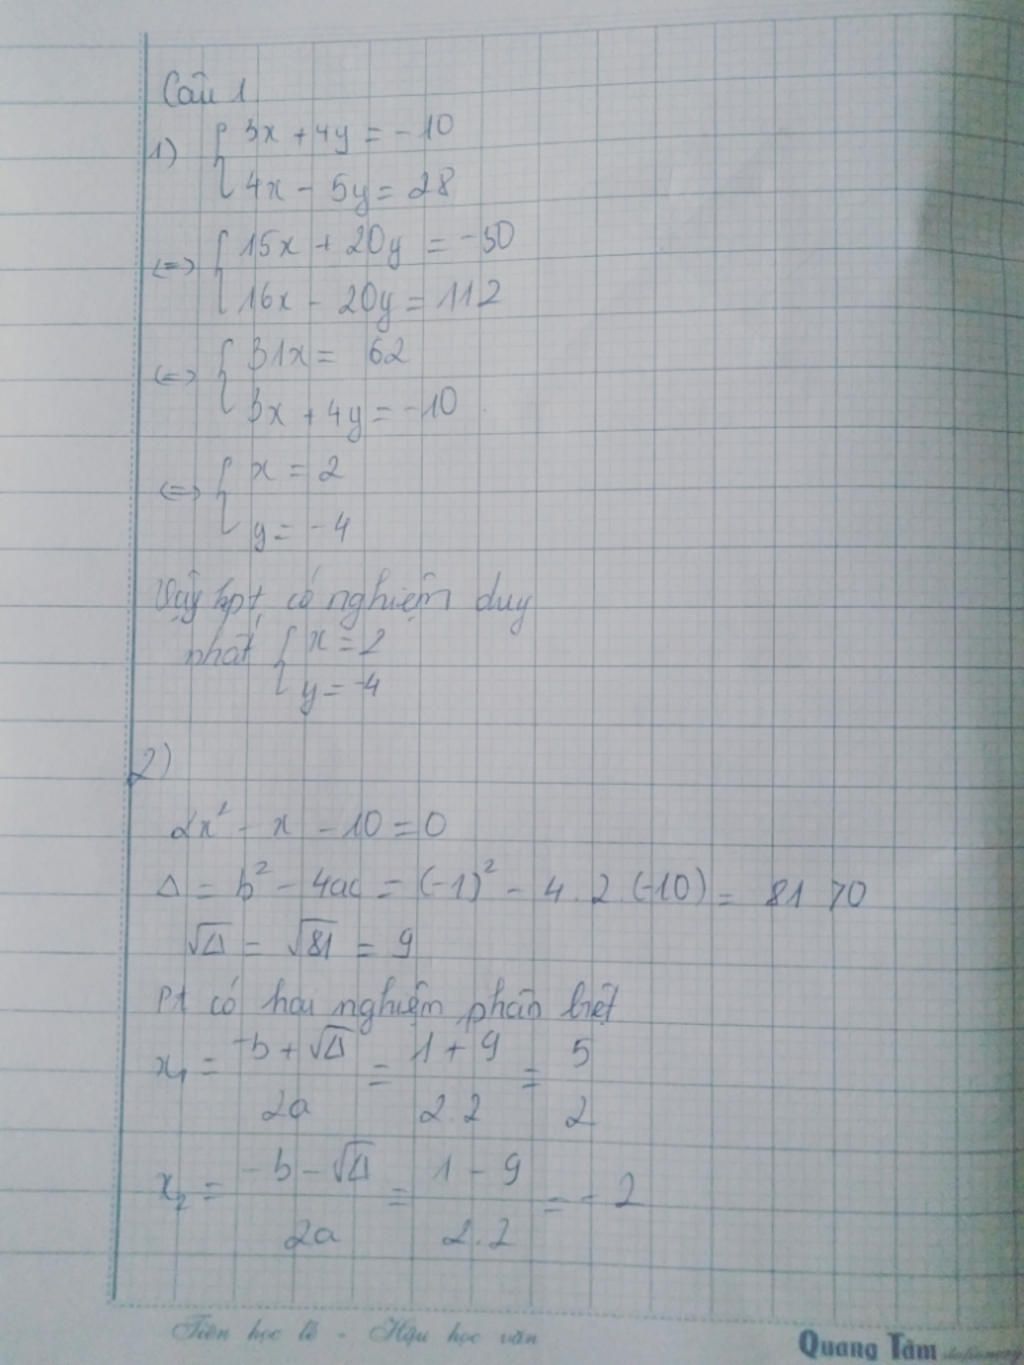 Câu 1
1) { 3x + 4y = -10
4x - 5y = 28
<=> { 15x + 20y = -50
16x - 20y = 112
<=> { 31x = 62
3x + 4y = -10
<=> { x = 2
y = -4
Vậy hpt có nghiệm duy
nhất { x = 2
y = -4
2)
2x² - x - 10 = 0
Δ = b² - 4ac = (-1)² - 4.2.(-10) = 81 > 0
√Δ = √81 = 9
Pt có hai nghiệm phân biệt
x₁ = (-b + √Δ)/2a = (1 + 9)/2.2 = 5/2
x₂ = (-b - √Δ)/2a = (1 - 9)/2.2 = -2
Tiên học lễ - Hậu học văn
Quang Tâm stationery